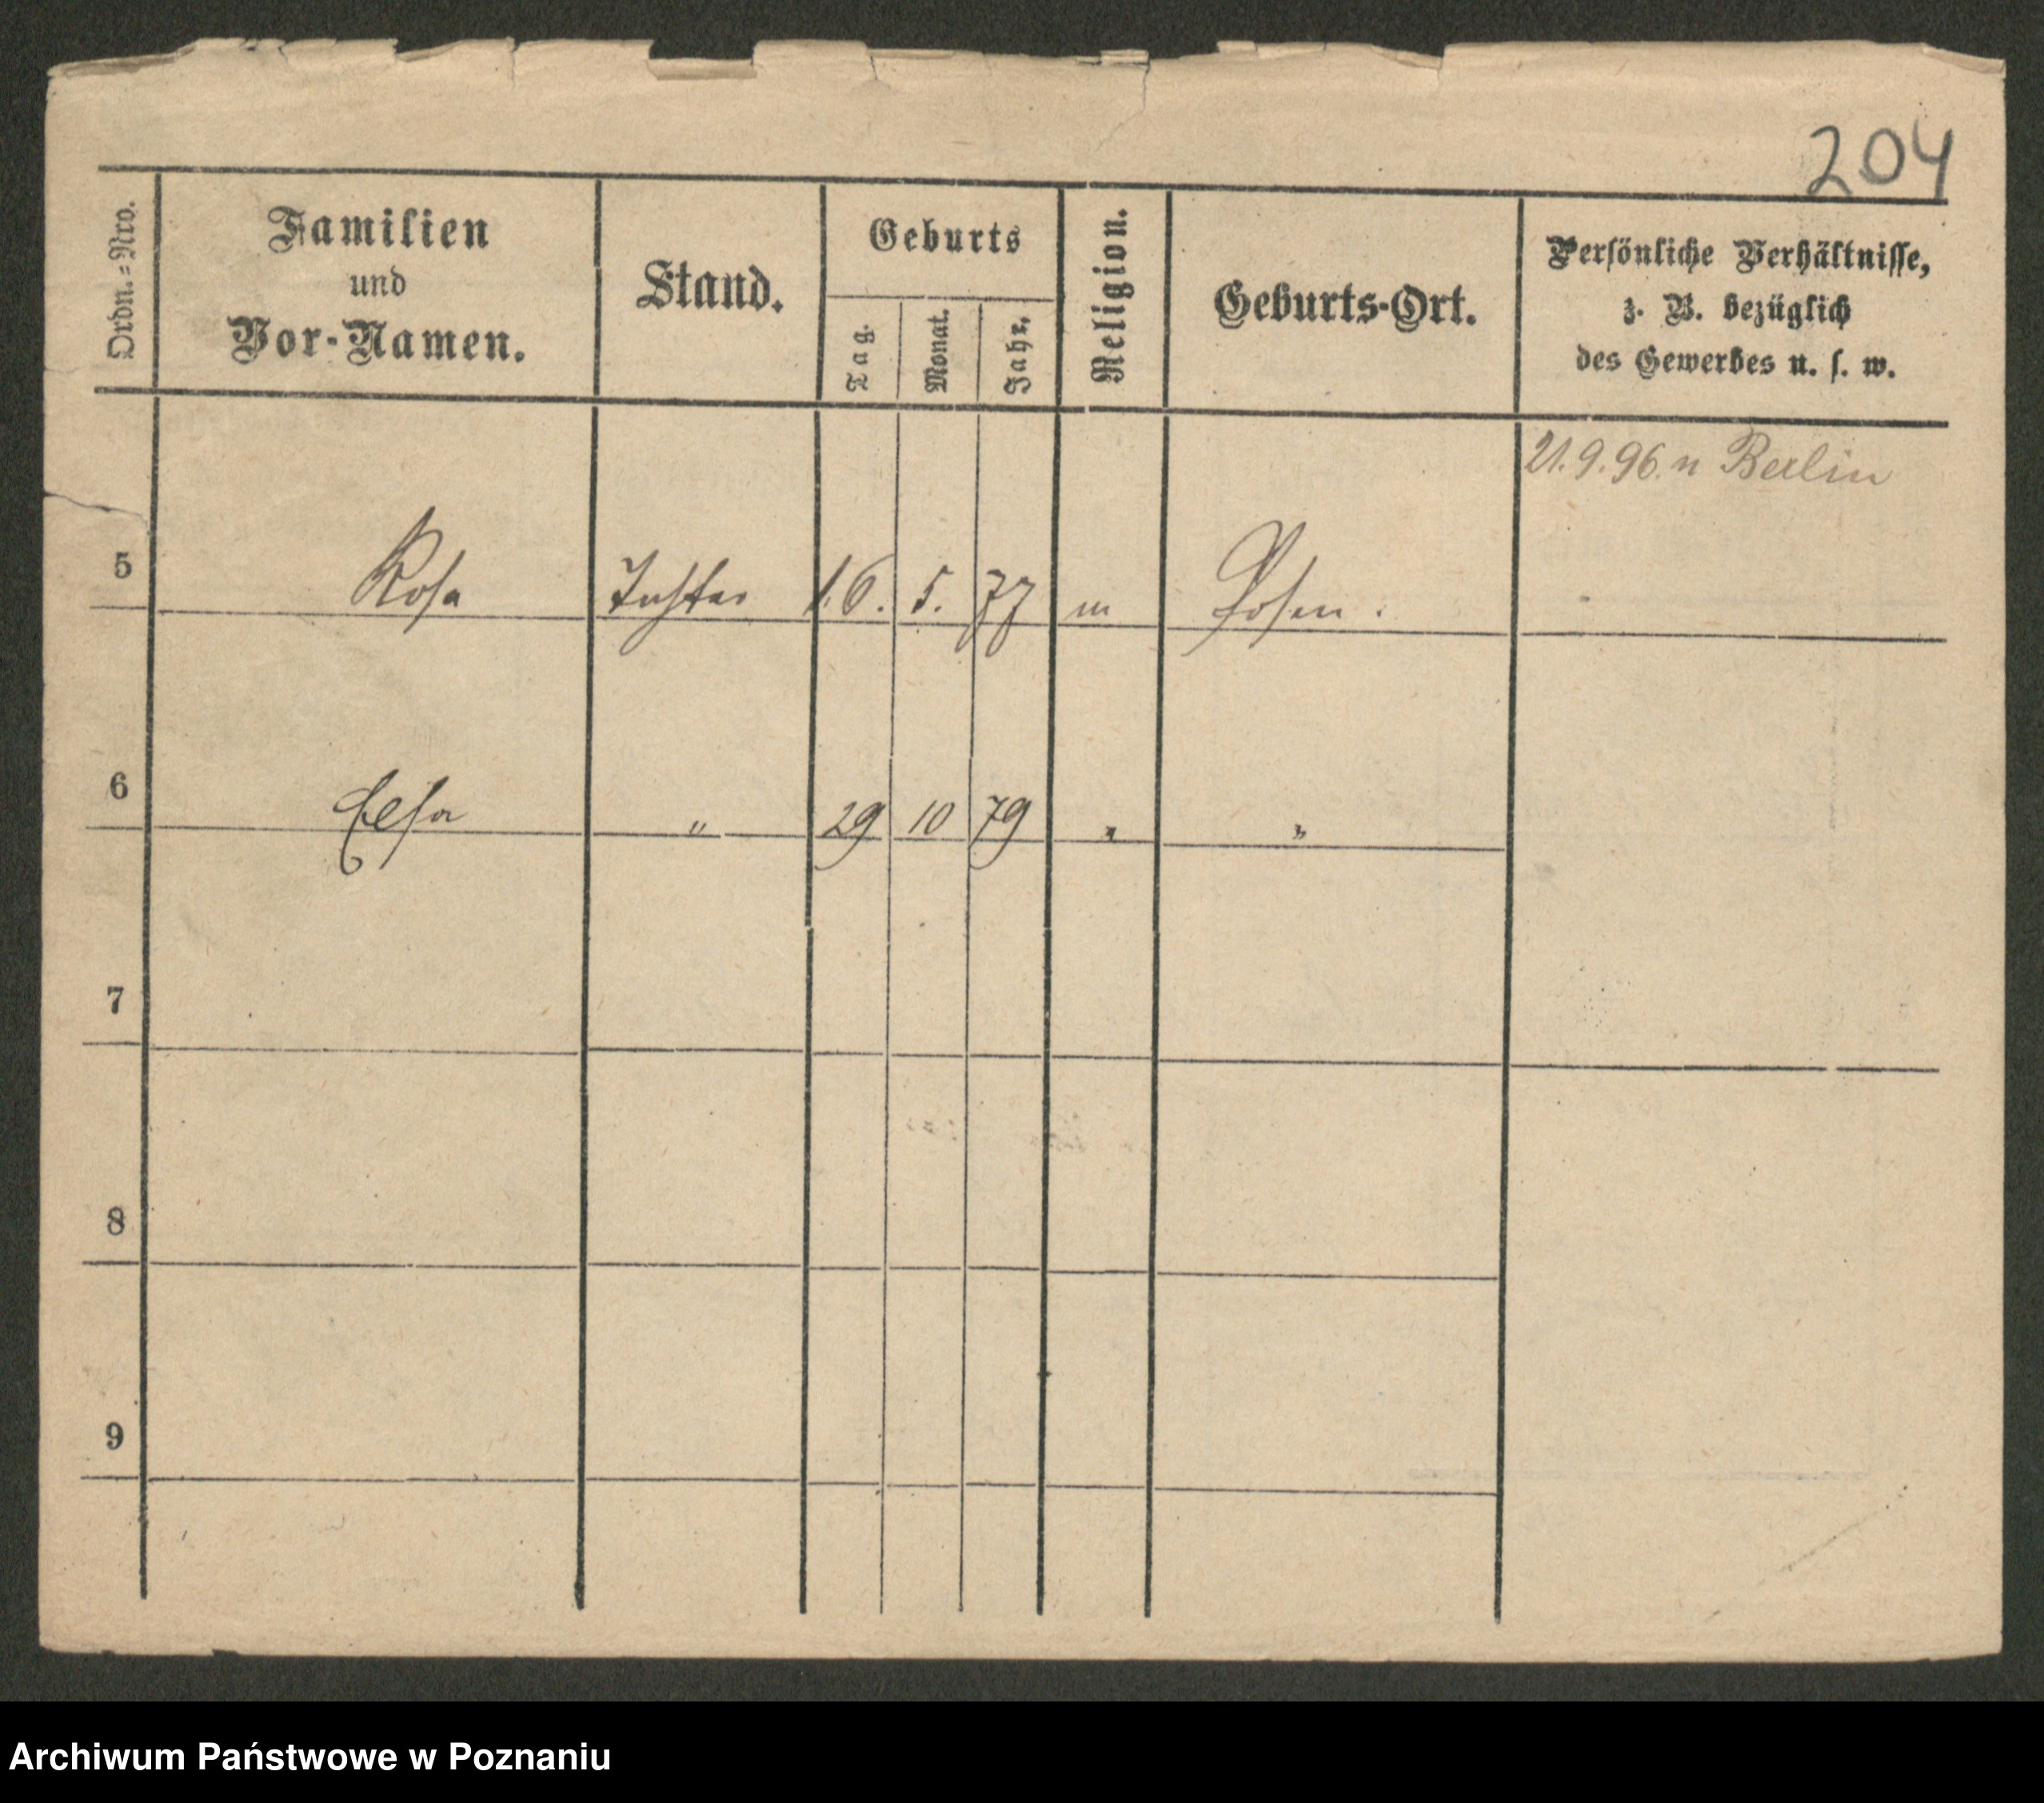 204
Ordn.=Nro.
Familien
und
Vor-Namen.
Stand.
Geburts
Tag.
Monat.
Jahr.
Religion.
Geburts-Ort.
Persönliche Verhältnisse,
z. B. bezüglich
des Gewerbes u. s. w.
21.9.96. n Berlin
5 Rosa Tochter 16. 5. 77 m Posen.
6 Elsa " 29 10 79 " "
7
8
9
Archiwum Państwowe w Poznaniu